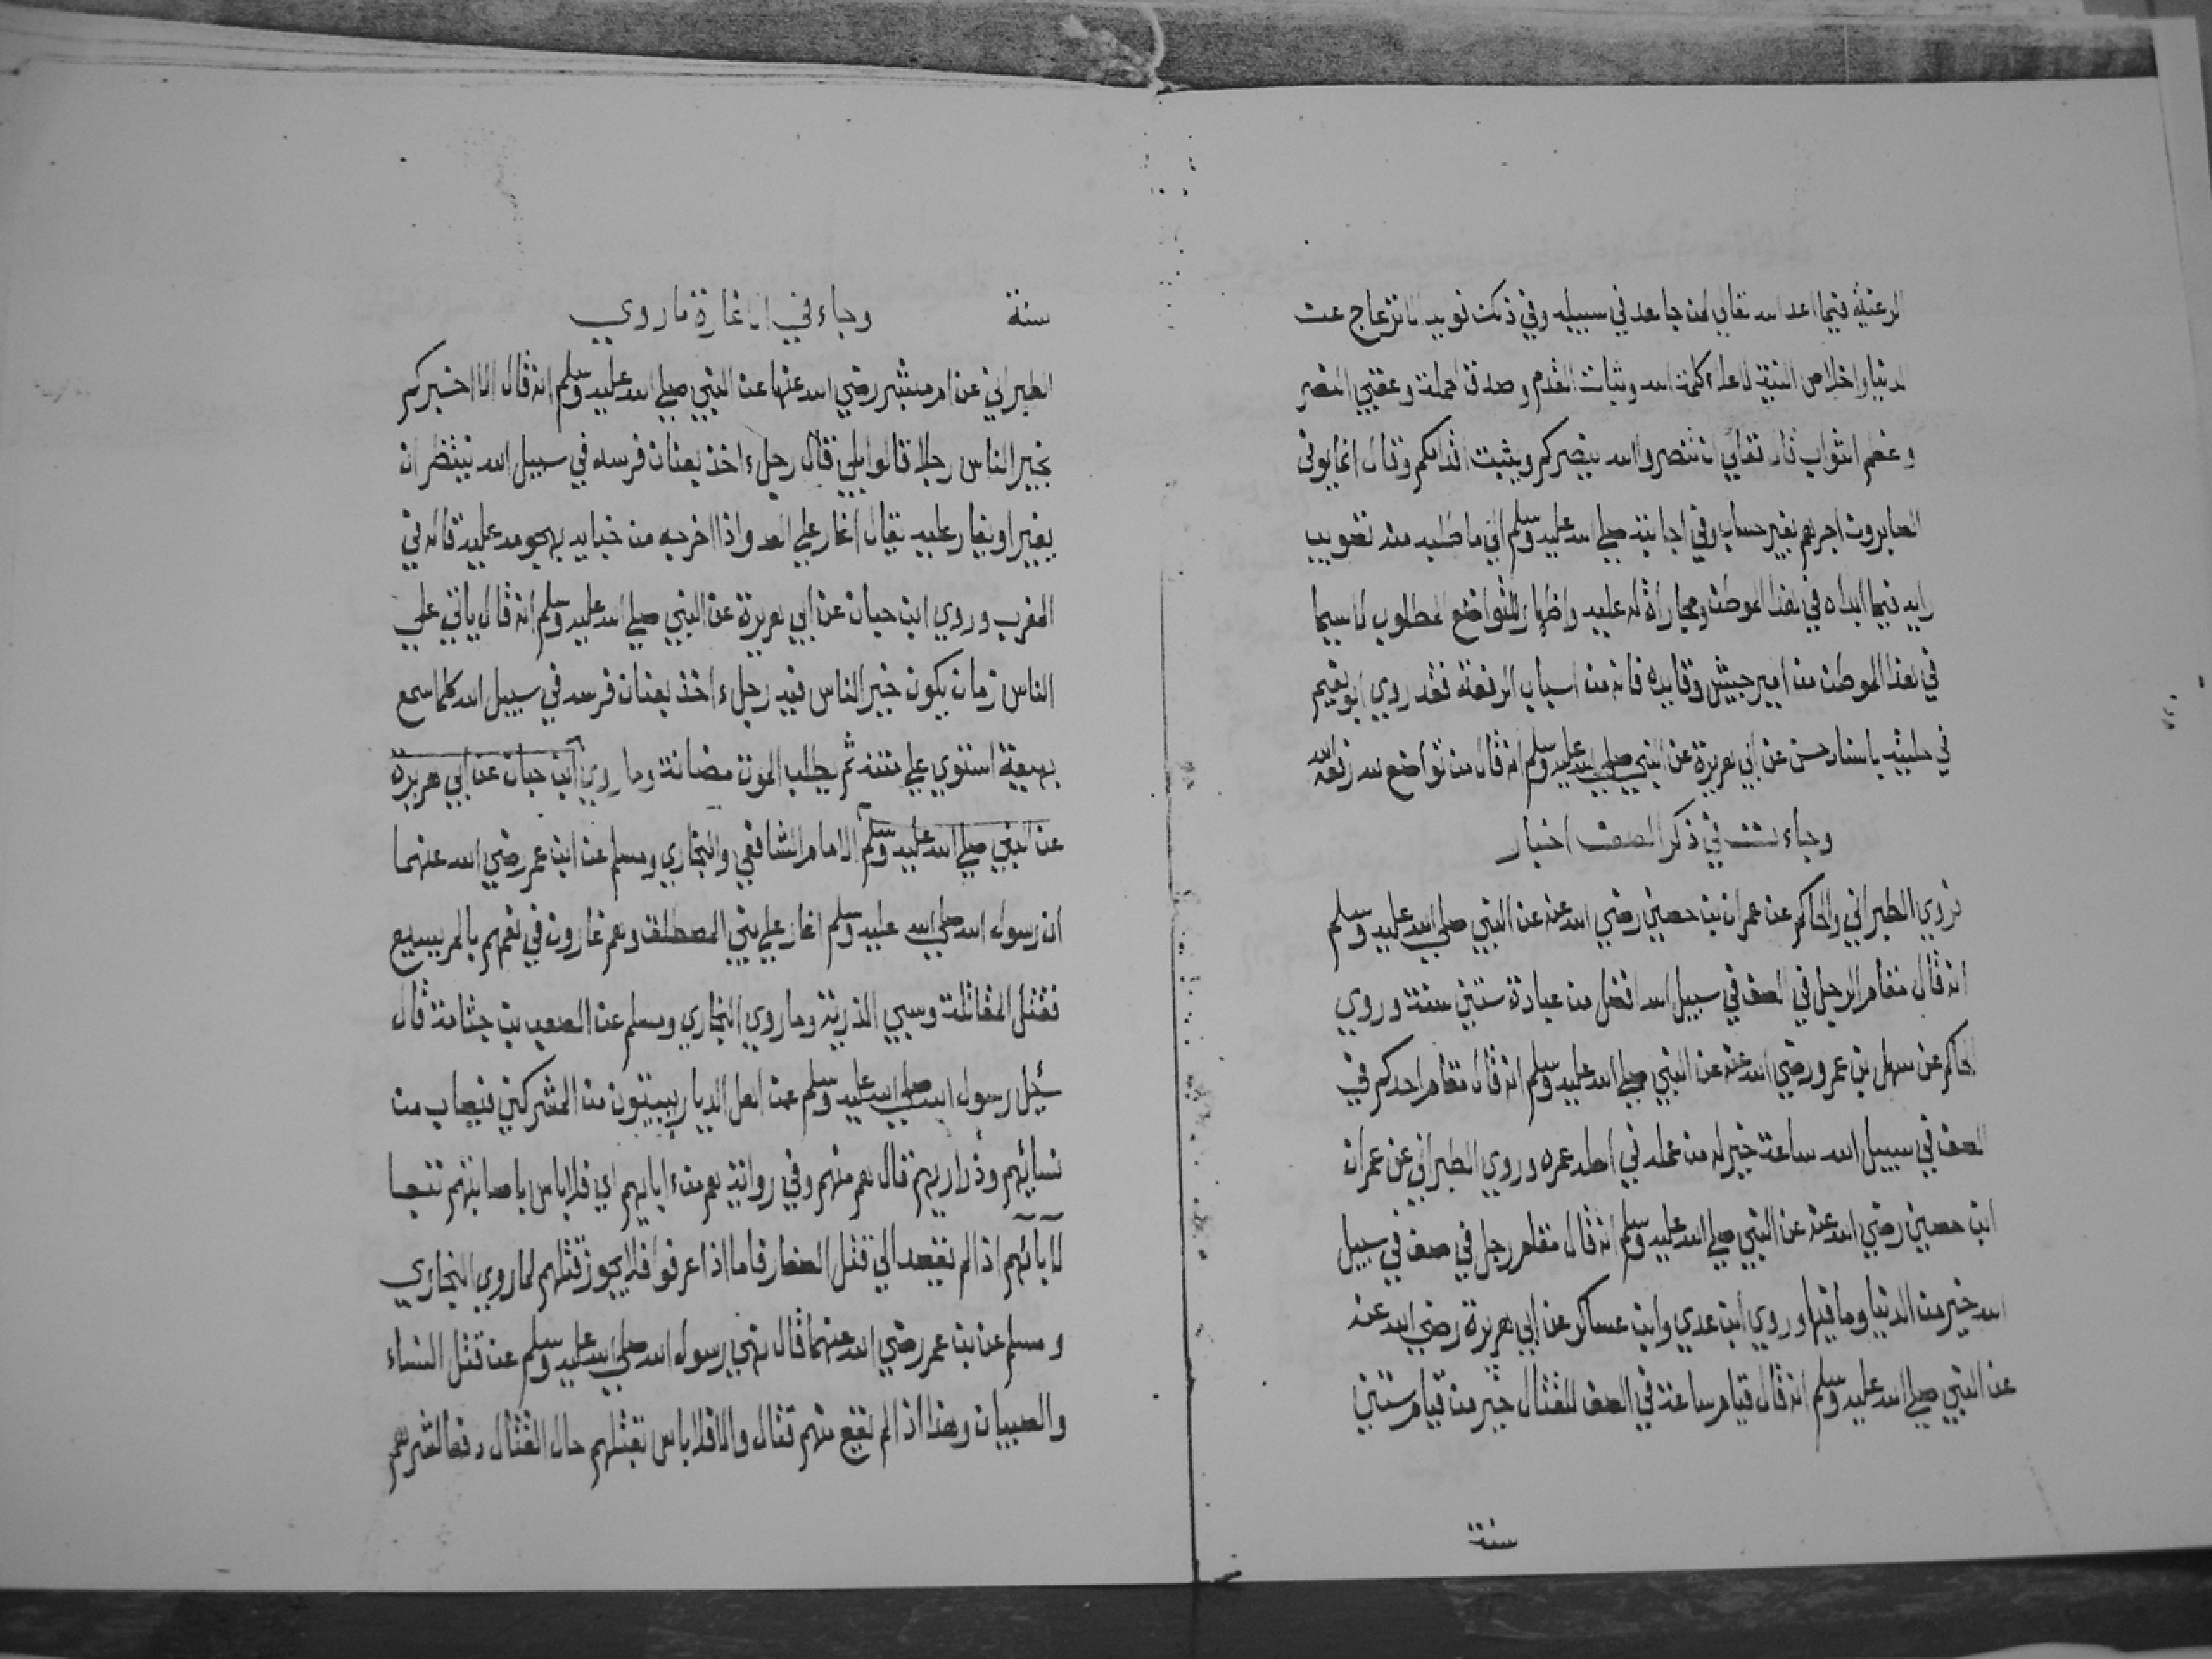 الرغبة فيما اعد الله تعالى لمن جاهد في سبيله وفي ذلك توبد الانزعاج عن
الدنيا واخلاص النية لاعلاء كلمة الله وثبات القدم وصدق الحملة وعقبى النصر
وعظم الثواب قال تعالى ان تنصروا الله ينصركم ويثبت اقدامكم وقال انما يوفى
الصابرون اجرهم بغير حساب وفي اجابته صلى الله عليه وسلم الى ما طلبه منه تصويب
رايه فيما ابداه في هذا الموطن ومجاراة له عليه واظهار للتواضع المطلوب لا سيما
في هذا الموطن من امير جيش وقايده فانه من اسباب الرفعة فقد روى ابو نعيم
في حليته باسناد حسن عن ابي هريرة عن النبي صلى الله عليه وسلم انه قال من تواضع لله رفعه الله
وجاءت في ذكر الصف اخبار
فروي الطبراني والحاكم عن عمران بن حصين رضي الله عنه عن النبي صلى الله عليه وسلم
انه قال مقام الرجل في الصف في سبيل الله افضل من عبادة ستين سنة وروي
الحاكم عن سهل بن عمرو رضي الله عنه عن النبي صلى الله عليه وسلم انه قال مقام احدكم في
الصف في سبيل الله ساعة خير له من عمله في اهله عمره وروي الطبراني عن عمران
ابن حصين رضي الله عنه عن النبي صلى الله عليه وسلم انه قال مقام رجل في صف في سبيل
الله خير من الدنيا وما فيها وروي ابن عدي وابن عساكر عن ابي هريرة رضي الله عنه
عن النبي صلى الله عليه وسلم انه قال قيام ساعة في الصف للقتال خير من قيام ستين
سنة
سنة وجاء في الاغارة ما روي
الطبراني عن ام مبشر رضي الله عنها عن النبي صلى الله عليه وسلم انه قال الا اخبركم
بخير الناس رجلا قالوا بلى قال رجل ءاخذ بعنان فرسه في سبيل الله ينتظر ان
يغير او يغار عليه يقال اغار على العدو اذا اخرجه من خبايه بهجومه عليه قاله في
المغرب وروي ابن حبان عن ابي هريرة عن النبي صلى الله عليه وسلم انه قال ياتي على
الناس زمان يكون خير الناس فيه رجل ءاخذ بعنان فرسه في سبيل الله كلما سمع
بهيعة استوي على متنه ثم يطلب الموت مضانه وما روي ابن حبان عن ابي هريرة
عن النبي صلى الله عليه وسلم الامام الشافعي والبخاري ومسلم عن ابن عمر رضي الله عنهما
ان رسول الله صلى الله عليه وسلم اغار على بني المصطلق وهم غارون في نعمهم بالمريسيع
فقتل المقاتلة وسبي الذرية وما روي البخاري ومسلم عن الصعب بن جثامة قال
سئل رسول الله صلى الله عليه وسلم عن اهل الديار يبيتون من المشركين فيصاب من
نسائهم وذراريهم قال هم منهم وفي رواية هم من ءابايهم اي فلا باس باصابتهم تبعا
لآبآئهم اذ الم تقصد الي قتل الصغار فاما اذا عرفوا فلا يجوز قتلهم لما روي البخاري
ومسلم عن بن عمر رضي الله عنهما قال نهي رسول الله صلى الله عليه وسلم عن قتل النساء
والصبيان وهذا اذ الم تقع منهم قتال والا فلا باس بقتلهم حال القتال دفعا لشرهم